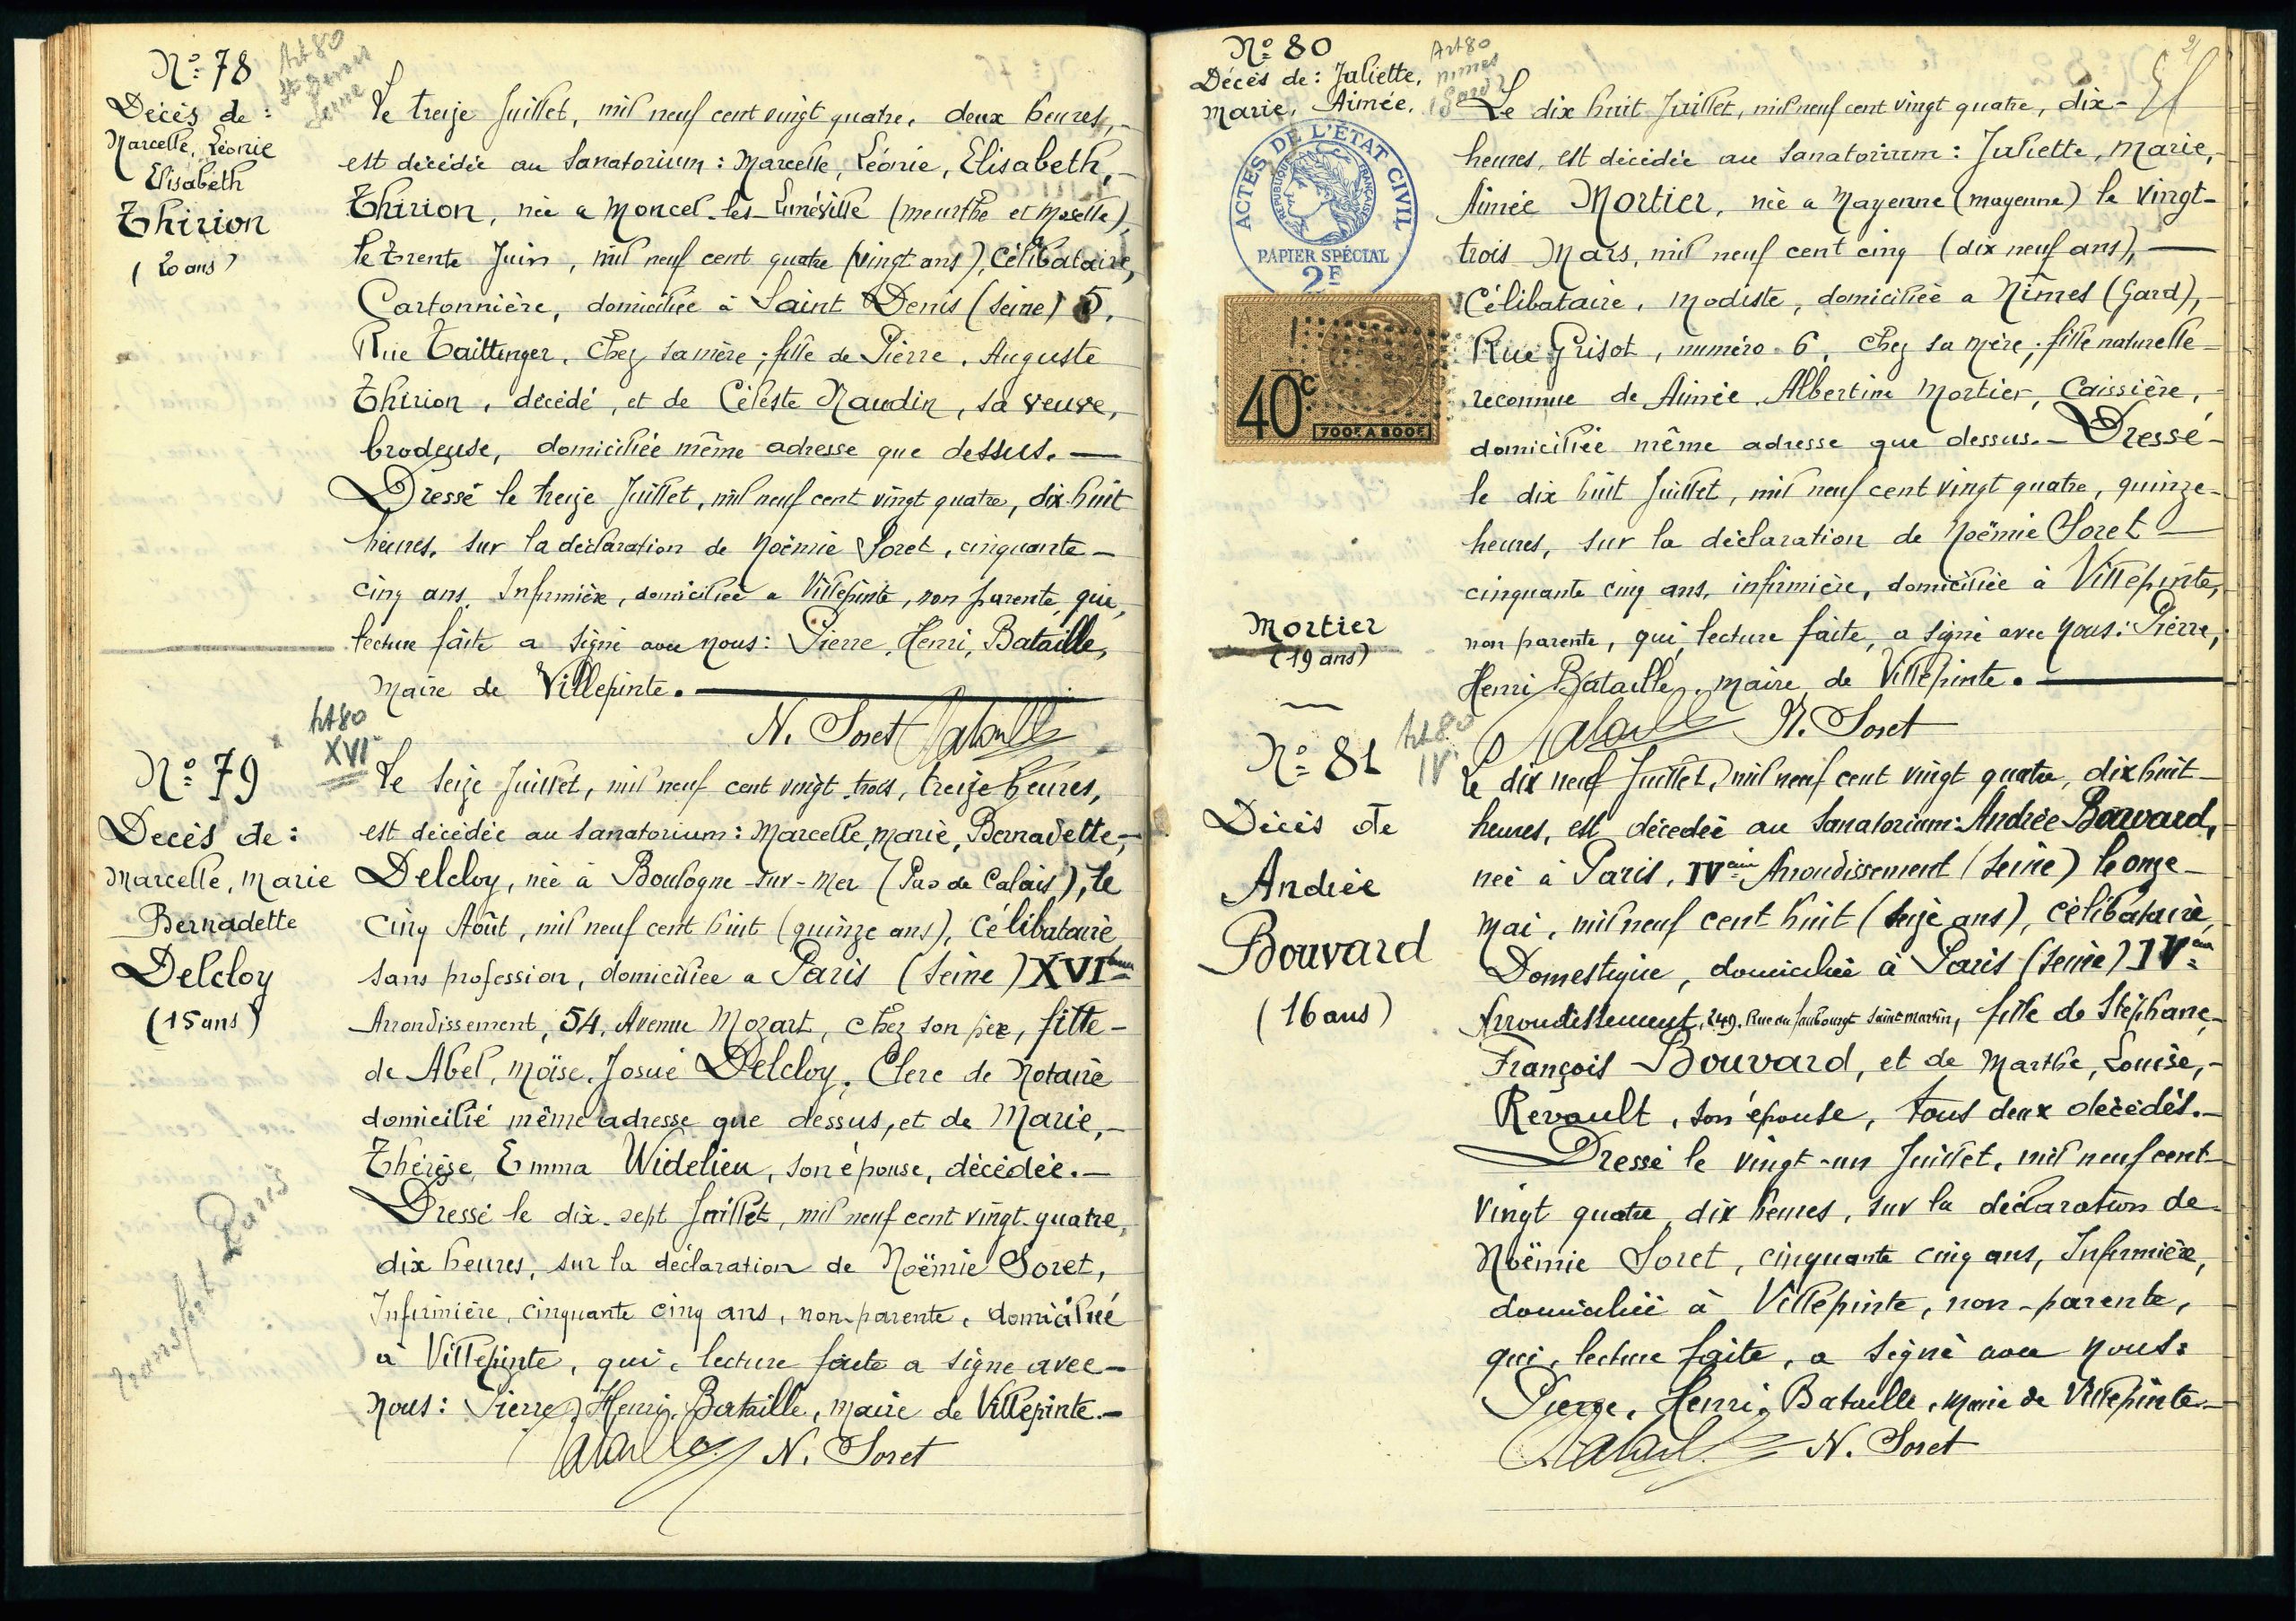 N° 78
Art 80
St Denis
Seine
Décès de :
Marcelle, Léonie
Elisabeth
Thirion
(20 ans)
Le treize Juillet, mil neuf cent vingt quatre, deux heures,
est décédée au Sanatorium : Marcelle, Léonie, Elisabeth,
Thirion, née a Moncel-les-Lunéville (Meurthe et Moselle),
le trente Juin, mil neuf cent quatre (vingt ans), Célibataire,
Cartonnière, domiciliée à Saint Denis (Seine) 5,
Rue Taittinger, chez sa mère ; fille de Pierre, Auguste
Thirion, décédé, et de Céleste Naudin, sa veuve,
brodeuse, domiciliée même adresse que dessus. —
Dressé le treize Juillet, mil neuf cent vingt quatre, dix-huit
heures, sur la déclaration de Noëmie Soret, cinquante-
cinq ans, Infirmière, domiciliée a Villepinte, non parente, qui,
lecture faite a signé avec nous : Pierre, Henri, Bataille,
Maire de Villepinte. —
N. Soret Bataille
N° 79
Art 80
XVI
Décès de :
Marcelle, Marie
Bernadette
Delcloy
(15 ans)
Le seize Juillet, mil neuf cent vingt-trois, treize heures,
est décédée au Sanatorium : Marcelle, Marie, Bernadette,
Delcloy, née à Boulogne-sur-Mer (Pas de Calais), le
cinq Août, mil neuf cent huit (quinze ans), Célibataire
sans profession, domiciliée a Paris (Seine) XVIème
Arrondissement, 54, Avenue Mozart, chez son père, fille-
de Abel, Moïse, Josué Delcloy, Clerc de Notaire
domicilié même adresse que dessus, et de Marie,
Thérèse, Emma Widelieu, son épouse, décédée. —
Dressé le dix-sept Juillet, mil neuf cent vingt-quatre,
dix heures, sur la déclaration de Noëmie Soret,
Infirmière, cinquante cinq ans, non-parente, domiciliée
à Villepinte, qui, lecture faite a signé avec —
Nous : Pierre, Henri, Bataille, maire de Villepinte. —
Bataille N. Soret
transfert Paris
N° 80
Art 80
Nimes
(Gard)
Décès de : Juliette,
Marie, Aimée,
ACTES DE L'ÉTAT CIVIL
RÉPUBLIQUE FRANÇAISE
PAPIER SPÉCIAL
2F
40c
700F A 800F
Mortier
(19 ans)
Le dix huit Juillet, mil neuf cent vingt quatre, dix-
heures, est décédée au Sanatorium : Juliette, Marie,
Aimée Mortier, née a Mayenne (Mayenne) le vingt-
trois Mars, mil neuf cent cinq (dix neuf ans), —
Célibataire, Modiste, domiciliée a Nîmes (Gard),
Rue Grisot, numéro 6, chez sa mère ; fille naturelle
reconnue de Aimée, Albertine Mortier, Caissière,
domiciliée même adresse que dessus. — Dressé
le dix huit Juillet, mil neuf cent vingt quatre, quinze
heures, sur la déclaration de Noëmie Soret —
cinquante cinq ans, infirmière, domiciliée à Villepinte,
non parente, qui, lecture faite, a signé avec nous : Pierre,
Henri Bataille, maire de Villepinte. —
Bataille N. Soret
N° 81
Art 80
IV
Décès de
Andrée
Bouvard
(16 ans)
Le dix neuf Juillet, mil neuf cent vingt quatre, dix huit
heures, est décédée au Sanatorium : Andrée Bouvard,
née à Paris, IVème Arrondissement (Seine) le onze
Mai, mil neuf cent huit (seize ans), célibataire,
Domestique, domiciliée à Paris (Seine) IVème
Arrondissement, 249, Rue du faubourgt Saint Martin, fille de Stéphane,
François Bouvard, et de Marthe, Louise,
Revault, son épouse, tous deux décédés. —
Dressé le vingt-un Juillet, mil neuf cent
vingt quatre, dix heures, sur la déclaration de
Noëmie Soret, cinquante cinq ans, Infirmière,
domiciliée à Villepinte, non-parente,
qui, lecture faite, a signé avec nous :
Pierre, Henri, Bataille, Maire de Villepinte. —
Bataille N. Soret